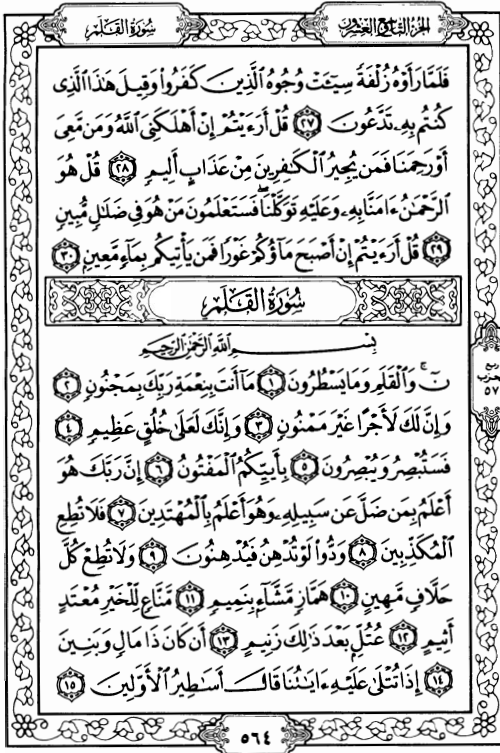 الجزء التاسع والعشرون
سورة القلم
فَلَمَّا رَأَوْهُ زُلْفَةً سِيٓـَٔتْ وُجُوهُ ٱلَّذِينَ كَفَرُوا۟ وَقِيلَ هَٰذَا ٱلَّذِى
كُنتُم بِهِۦ تَدَّعُونَ ٢٧ قُلْ أَرَءَيْتُمْ إِنْ أَهْلَكَنِىَ ٱللَّهُ وَمَن مَّعِىَ
أَوْ رَحِمَنَا فَمَن يُجِيرُ ٱلْكَٰفِرِينَ مِنْ عَذَابٍ أَلِيمٍ ٢٨ قُلْ هُوَ
ٱلرَّحْمَٰنُ ءَامَنَّا بِهِۦ وَعَلَيْهِ تَوَكَّلْنَا ۖ فَسَتَعْلَمُونَ مَنْ هُوَ فِى ضَلَٰلٍ مُّبِينٍ
٢٩ قُلْ أَرَءَيْتُمْ إِنْ أَصْبَحَ مَآؤُكُمْ غَوْرًا فَمَن يَأْتِيكُم بِمَآءٍ مَّعِينٍۭ ٣٠
سُورَةُ القَلَمِ
بِسْمِ ٱللَّهِ ٱلرَّحْمَٰنِ ٱلرَّحِيمِ
نٓ ۚ وَٱلْقَلَمِ وَمَا يَسْطُرُونَ ١ مَآ أَنتَ بِنِعْمَةِ رَبِّكَ بِمَجْنُونٍ ٢
وَإِنَّ لَكَ لَأَجْرًا غَيْرَ مَمْنُونٍ ٣ وَإِنَّكَ لَعَلَىٰ خُلُقٍ عَظِيمٍ ٤
فَسَتُبْصِرُ وَيُبْصِرُونَ ٥ بِأَييِّكُمُ ٱلْمَفْتُونُ ٦ إِنَّ رَبَّكَ هُوَ
أَعْلَمُ بِمَن ضَلَّ عَن سَبِيلِهِۦ وَهُوَ أَعْلَمُ بِٱلْمُهْتَدِينَ ٧ فَلَا تُطِعِ
ٱلْمُكَذِّبِينَ ٨ وَدُّوا۟ لَوْ تُدْهِنُ فَيُدْهِنُونَ ٩ وَلَا تُطِعْ كُلَّ
حَلَّافٍ مَّهِينٍ ١٠ هَمَّازٍ مَّشَّآءٍۭ بِنَمِيمٍ ١١ مَّنَّاعٍ لِّلْخَيْرِ مُعْتَدٍ
أَثِيمٍ ١٢ عُتُلٍّۭ بَعْدَ ذَٰلِكَ زَنِيمٍ ١٣ أَن كَانَ ذَا مَالٍ وَبَنِينَ
١٤ إِذَا تُتْلَىٰ عَلَيْهِ ءَايَٰتُنَا قَالَ أَسَٰطِيرُ ٱلْأَوَّلِينَ ١٥
حزب
٥٧
٥٦٤